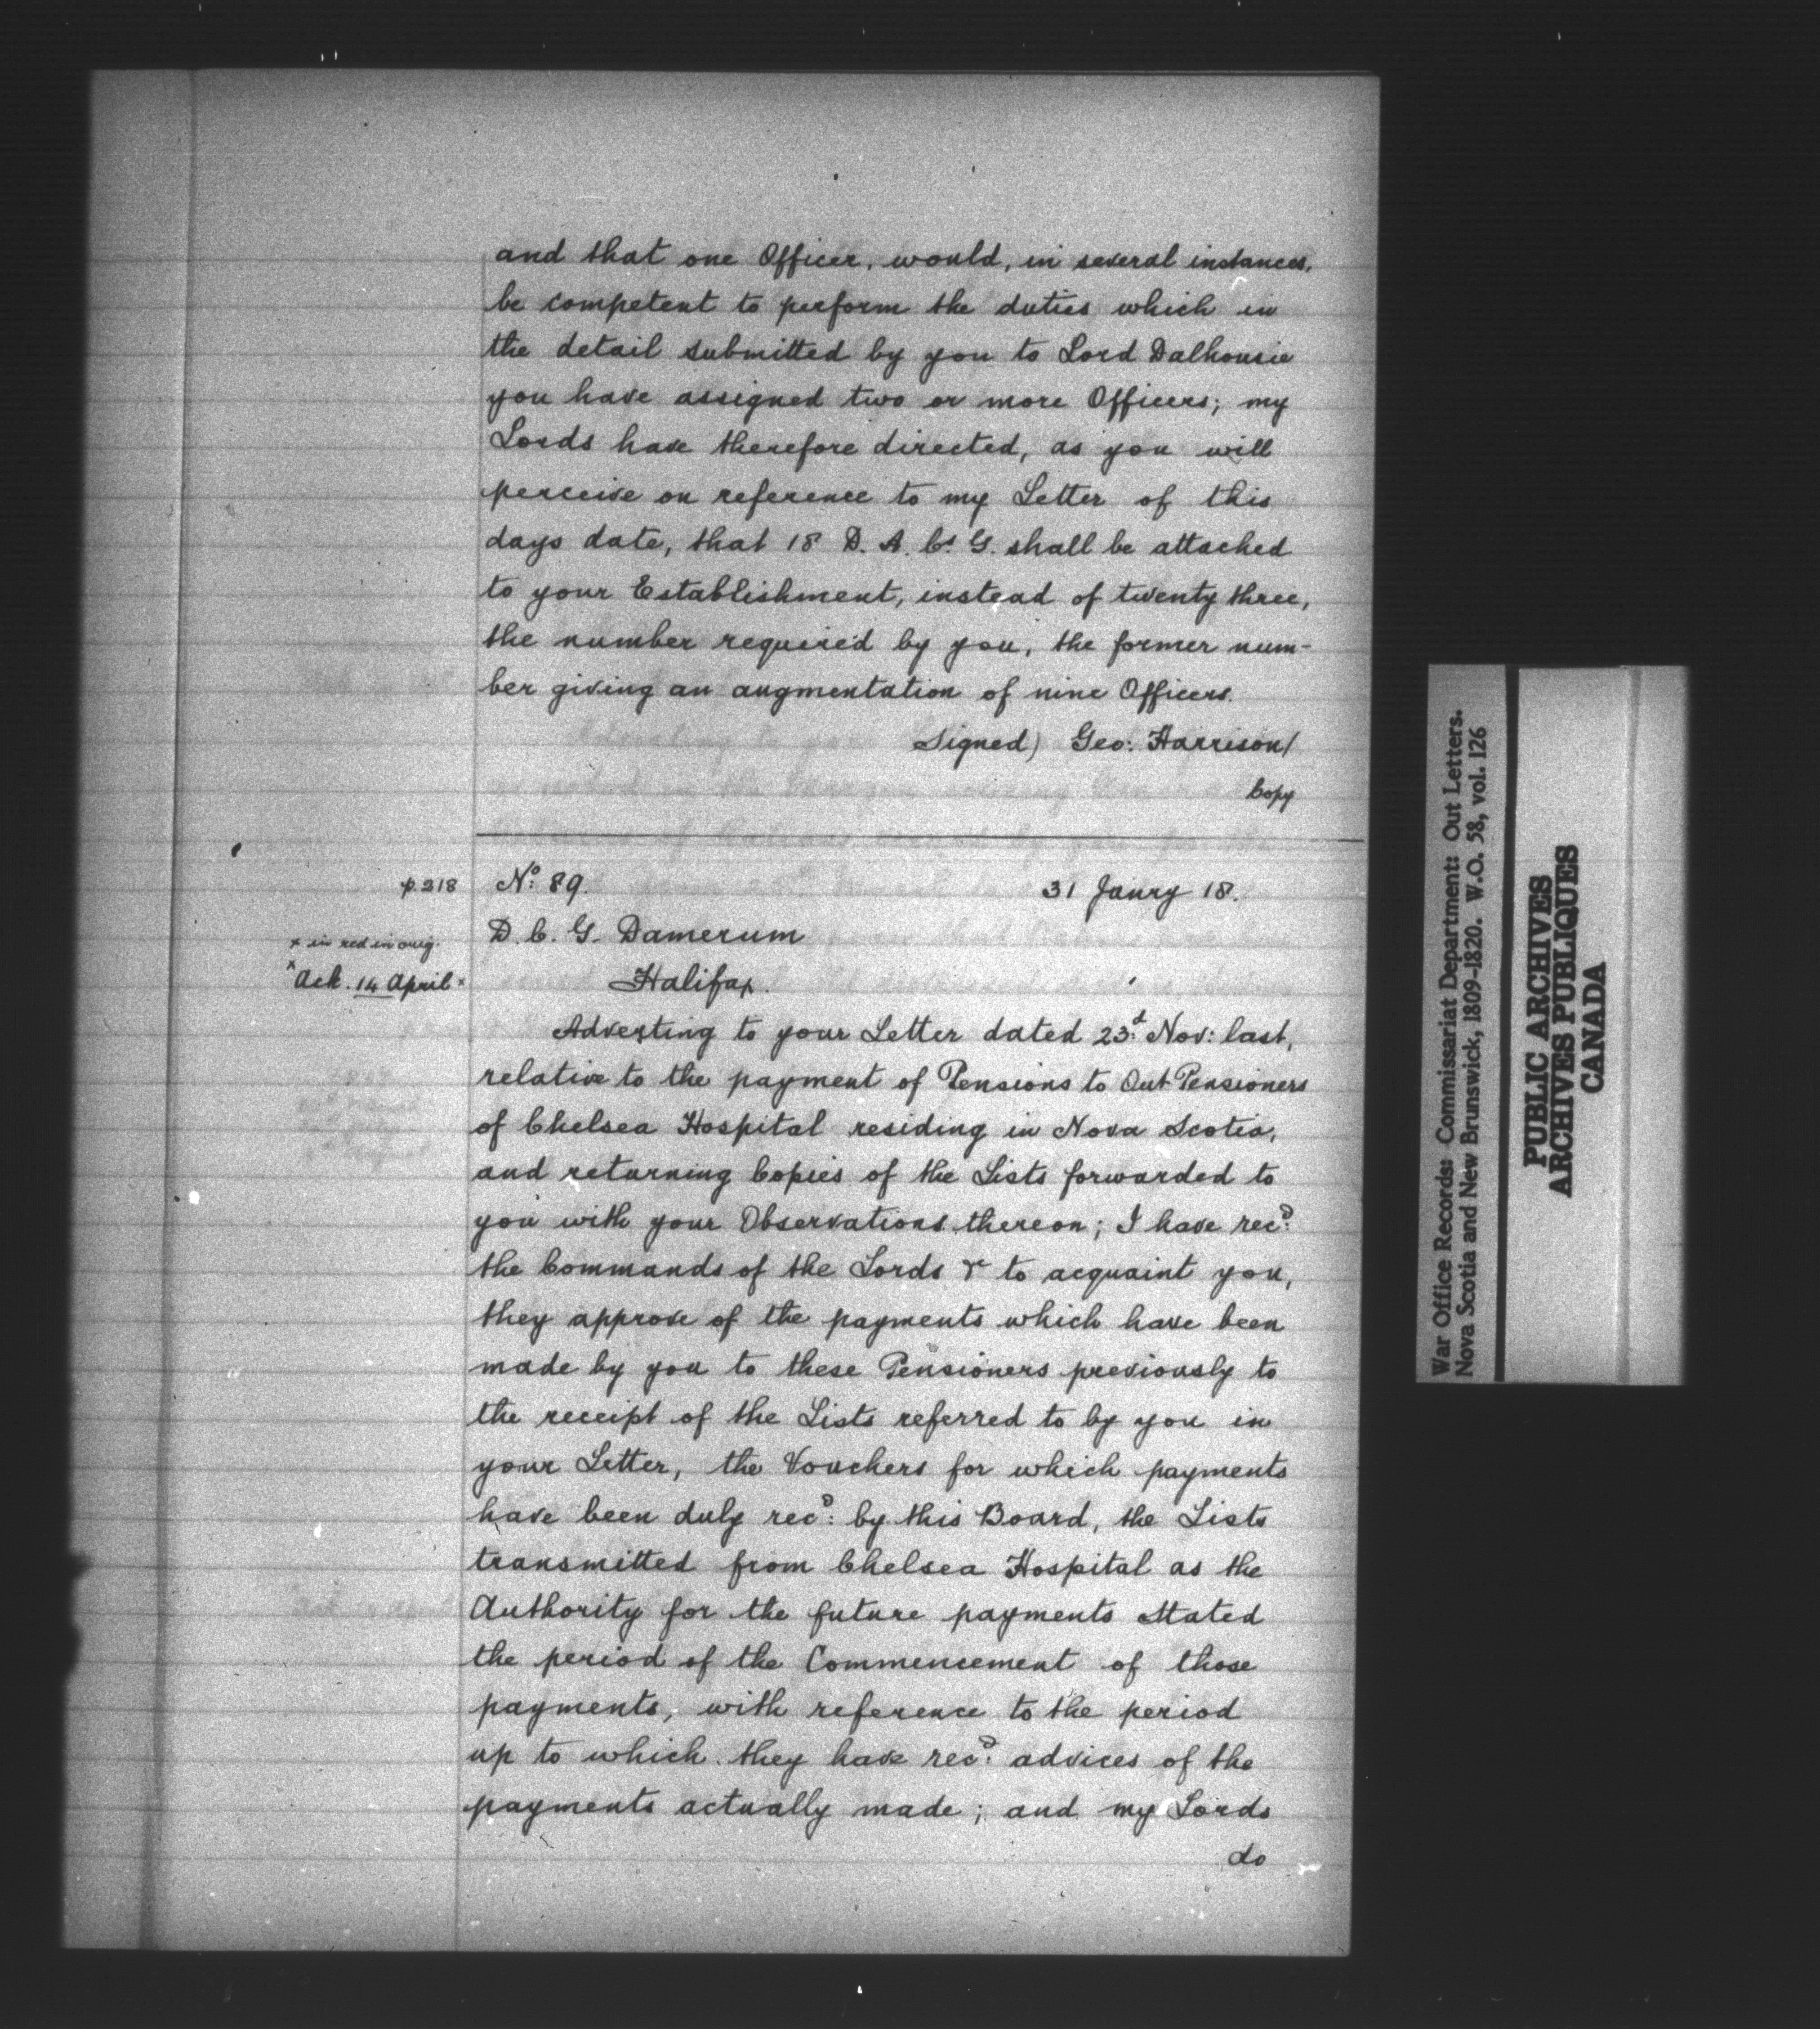 and that one Officer, would, in several instances,
be competent to perform the duties which in
the detail submitted by you to Lord Dalhousie
you have assigned two or more Officers; my
Lords have therefore directed, as you will
perceive on reference to my Letter of this
days date, that 18 D. A. Cs. G. shall be attached
to your Establishment, instead of twenty three,
the number required by you, the former num-
ber giving an augmentation of nine Officers.
Signed) Geo: Harrison/
Copy
p. 218
No: 89.
31 Janry 18.
D. C. G. Damerum
x in red in orig.
x Ack. 14 April x
Halifax.
Adverting to your Letter dated 23d Nov: last,
relative to the payment of Pensions to Out Pensioners
of Chelsea Hospital residing in Nova Scotia,
and returning Copies of the Lists forwarded to
you with your Observations thereon; I have recd:
the Commands of the Lords & to acquaint you,
they approve of the payments which have been
made by you to these Pensioners previously to
the receipt of the Lists referred to by you in
your Letter, the Vouchers for which payments
have been duly recd: by this Board, the Lists
transmitted from Chelsea Hospital as the
Authority for the future payments stated
the period of the Commencement of those
payments, with reference to the period
up to which they have recd: advices of the
payments actually made; and my Lords
do
War Office Records: Commissariat Department: Out Letters.
Nova Scotia and New Brunswick, 1809-1820. W.O. 58, vol. 126
PUBLIC ARCHIVES
ARCHIVES PUBLIQUES
CANADA